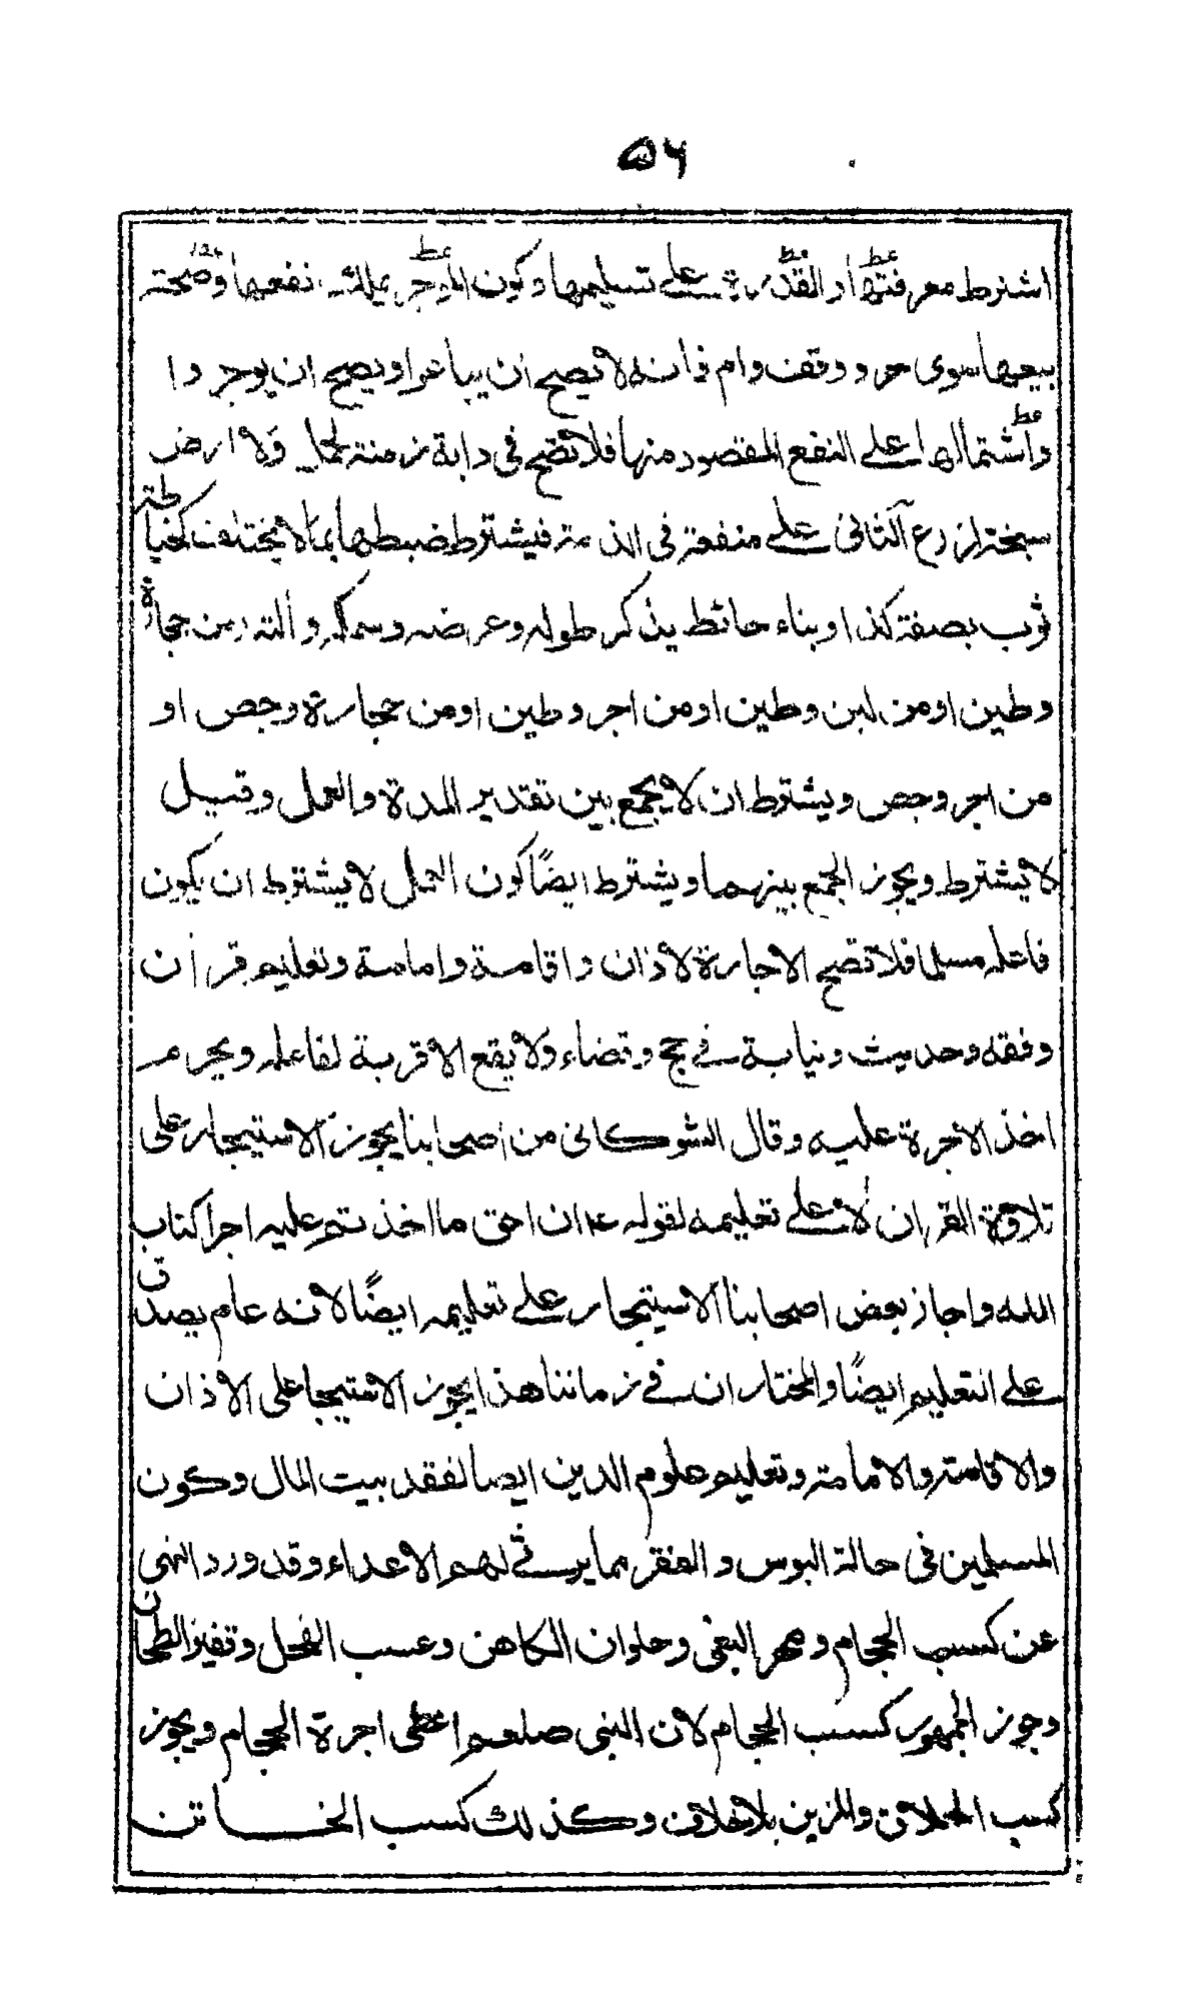 ٥٦
اشترط معرفتها والقدرة على تسليمها وكون الموجر يملك نفعها وصحة
بيعها سوى حر ووقف وام فانه لا يصح ان يباعوا ويصح ان يوجروا
واشتمالها على النفع المقصود منها فلا تصح في دابة زمنة لحمل ولا ارض
سبخة لزرع الثاني على منفعة في الذمة فيشترط ضبطها بما لا يختلف كخياطة
ثوب بصفة كذا او بناء حائط يذكر طوله وعرضه وسمكه وآلته من حجارة
وطين او من لبن وطين او من اجر وطين او من حجارة وجص او
من اجر وجص ويشترط ان لا يجمع بين تقدير المدة والعمل وقيل
لا يشترط ويجوز الجمع بينهما ويشترط ايضًا كون العمل لا يشترط ان يكون
فاعله مسلما فلا تصح الاجارة لأذان واقامة وامامة وتعليم قرآن
وفقه وحديث ونيابة في حج وقضاء ولا يقع الا قربة لفاعله ويحرم
اخذ الاجرة عليه وقال الشوكاني من اصحابنا يجوز الاستيجار على
تلاوة القرآن لا على تعليمه لقوله ؑ ان احق ما اخذتم عليه اجرا كتاب
الله واجاز بعض اصحابنا الاستيجار على تعليمه ايضًا لانه عام يصدق
على التعليم ايضًا والمختار ان في زماننا هذا يجوز الاستيجا على الاذان
والاقامة والامامة وتعليم علوم الدين ايضا لفقد بيت المال وكون
المسلمين في حالة البوس والفقر مما يرثى لهم الاعداء وقد ورد النهي
عن كسب الحجام ومهر البغي وحلوان الكاهن وعسب الفحل وقفيز الطحان
وجوز الجمهور كسب الحجام لان النبي صلعم اعطى اجرة الحجام ويجوز
كسب الحلاق والمزين بلا خلاف وكذلك كسب الخاتن